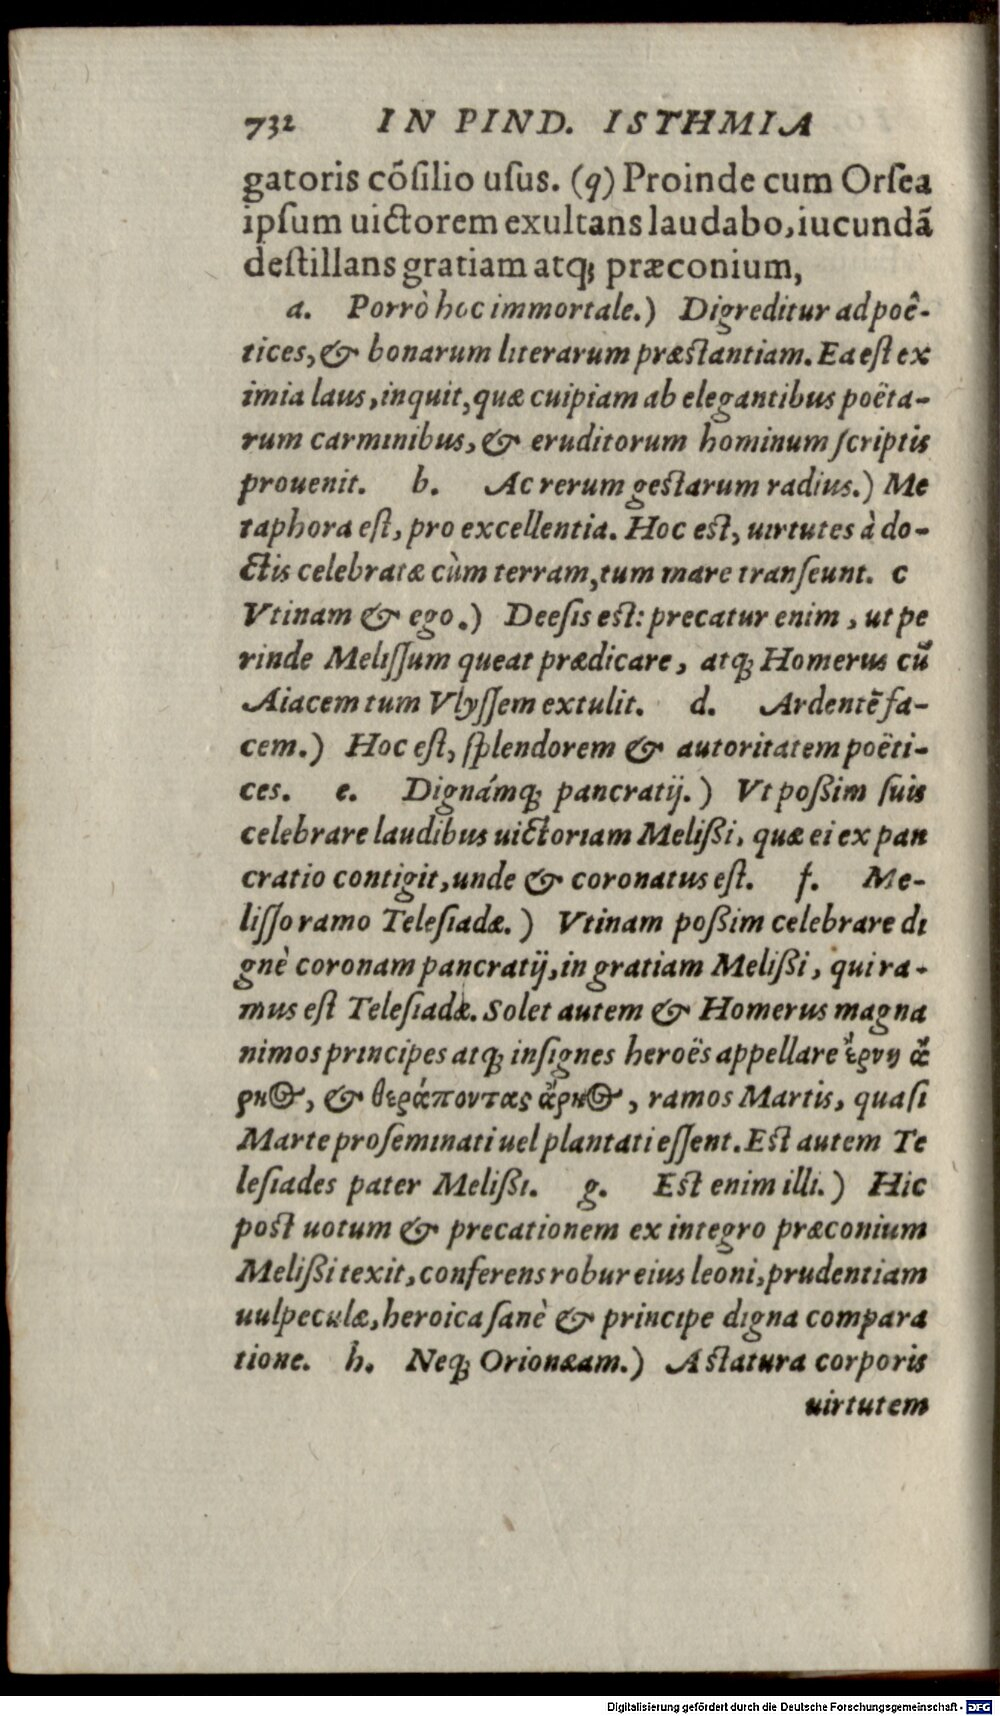 732 IN PIND. ISTHMIA
gatoris cōſilio uſus. (q) Proinde cum Orſea
ipſum uictorem exultans laudabo, iucundã
deſtillans gratiam atq; præconium,
a. Porrò hoc immortale.) Digreditur ad poê-
tices, & bonarum literarum præſtantiam. Ea eſt ex
imia laus, inquit, quæ cuipiam ab elegantibus poëta-
rum carminibus, & eruditorum hominum ſcriptis
prouenit. b. Ac rerum geſtarum radius.) Me
taphora eſt, pro excellentia. Hoc eſt, uirtutes à do-
ctis celebratæ cùm terram, tum mare tranſeunt. c
Vtinam & ego.) Deeſis eſt: precatur enim, ut pe
rinde Meliſſum queat prædicare, atq; Homerus cũ
Aiacem tum Vlyſſem extulit. d. Ardentẽ fa-
cem.) Hoc eſt, ſplendorem & autoritatem poëti-
ces. e. Dignámq; pancratij.) Vt poßim ſuis
celebrare laudibus uictoriam Melißi, quæ ei ex pan
cratio contigit, unde & coronatus eſt. f. Me-
liſſo ramo Teleſiadæ.) Vtinam poßim celebrare di
gnè coronam pancratij, in gratiam Melißi, qui ra-
mus eſt Teleſiadæ. Solet autem & Homerus magna
nimos principes atq; inſignes heroës appellare ἔρνη ἄ
ρηος, & θεράποντας ἄρηος, ramos Martis, quaſi
Marte proſeminati uel plantati eſſent. Eſt autem Te
leſiades pater Melißi. g. Eſt enim illi.) Hic
poſt uotum & precationem ex integro præconium
Melißi texit, conferens robur eius leoni, prudentiam
uulpeculæ, heroica ſanè & principe digna compara
tione. h. Neq; Orionæam.) A ſtatura corporis
uirtutem
Digitalisierung gefördert durch die Deutsche Forschungsgemeinschaft - DFG